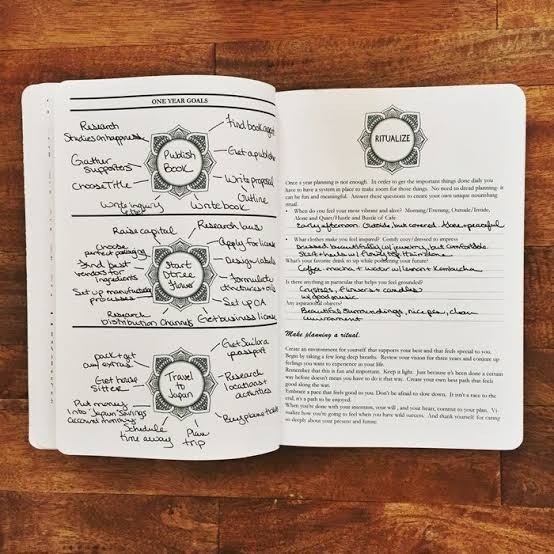 ONE YEAR GOALS
Research
Studies on happiness
Find book agent
Gather
Supporters
Publish
Book
Get a publisher
Choose Title
Write proposal
Outline
Write inquiry
Write book
Raise capital
Research laws
Choose
perfect packaging
Apply for license
Find best
vendors for
ingredients
Start
Flower
Design labels
Formulate
Set up manufacturing
processes
Set up QA
Research
Distribution Channels
Get business license
pack + get
any extras
Get
passport
Get house
Sitter
Travel
to
Japan
Research
locations +
activities
Put money
into Japan Savings
account
Buy plane tickets
Schedule
time away
Plan
trip
RITUALIZE
Once a year planning is not enough. In order to get the important things done daily you
have to have a system in place to make room for those things. No need to dread planning- it
can be fun and meaningful. Answer these questions to create your own unique nourishing
ritual.
• When do you feel your most vibrant and alive? Morning/Evening, Outside/Inside,
Alone and Quiet/Hustle and Bustle of Cafe
Early afternoon. Outside, but covered. Alone + peaceful
• What clothes make you feel inspired? Comfy cozy/dressed to impress
Dressed beautifully w/ jewelry, but comfortable.
What's your favorite drink to sip while pondering your future?
Coffee - mocha + water w/ lemon + Kombucha
Is there anything in particular that helps you feel grounded?
Crystals, flowers + candles
w/ good music
Any aspirational objects?
Beautiful surroundings, nice pen, clean
environment
Make planning a ritual.
Create an environment for yourself that supports your best and that feels special to you.
Begin by taking a few long deep breaths. Review your vision for three years and conjure up
feelings you want to experience in your life.
Remember that this is fun and important. Keep it light. Just because it's been done a certain
way before doesn't mean you have to do it that way. Create your own best path that feels
good along the way.
Embrace a pace that feels good to you. Don't be afraid to slow down. It isn't a race to the
end, it's a path to be enjoyed.
When you're done with your intention, your will, and your heart, commit to your plan. Vi
sualize how you're going to feel when you have wild success. And thank yourself for caring
so deeply about your present and future.